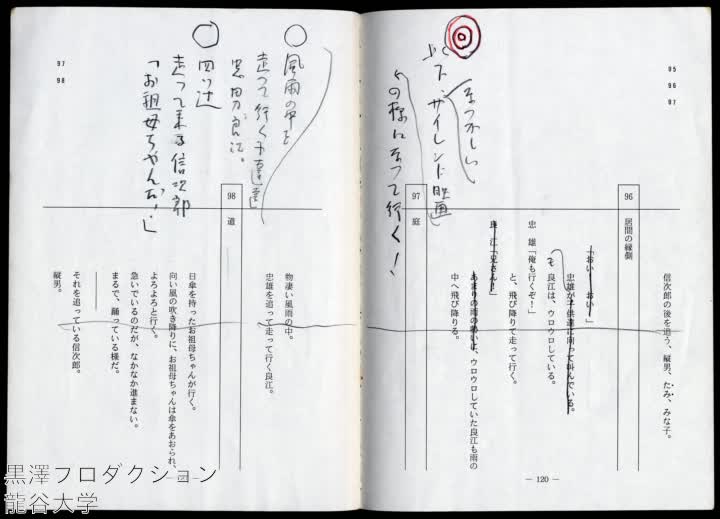 95
96
97
信次郎の後を追う、縦男、たみ、みな子。
96
居間の縁側
「おい！　おい！」
忠雄が子供達に向って叫んでいる。
も
良江は、ウロウロしている。
忠　雄「俺も行くぞ！」
と、飛び降りて走って行く。
良　江「兄さん！」
あまりの雨の勢いに、ウロウロしていた良江も雨の
中へ飛び降りる。
97
庭
なつかしい
サイレント映画
の様になって行く！
― 120 ―
97
98
風雨の中を
走って行く子達
忠雄、良江。
四ツ辻
走って来る信次郎
「お祖母ちゃんだ！」
物凄い風雨の中。
忠雄を追って走って行く良江。
98
道
日傘を持ったお祖母ちゃんが行く。
向い風の吹き降りに、お祖母ちゃんは傘をあおられ、
よろよろと行く。
急いでいるのだが、なかなか進まない。
まるで、踊っている様だ。
それを追っている信次郎。
縦男。
黒澤プロダクション
龍谷大学